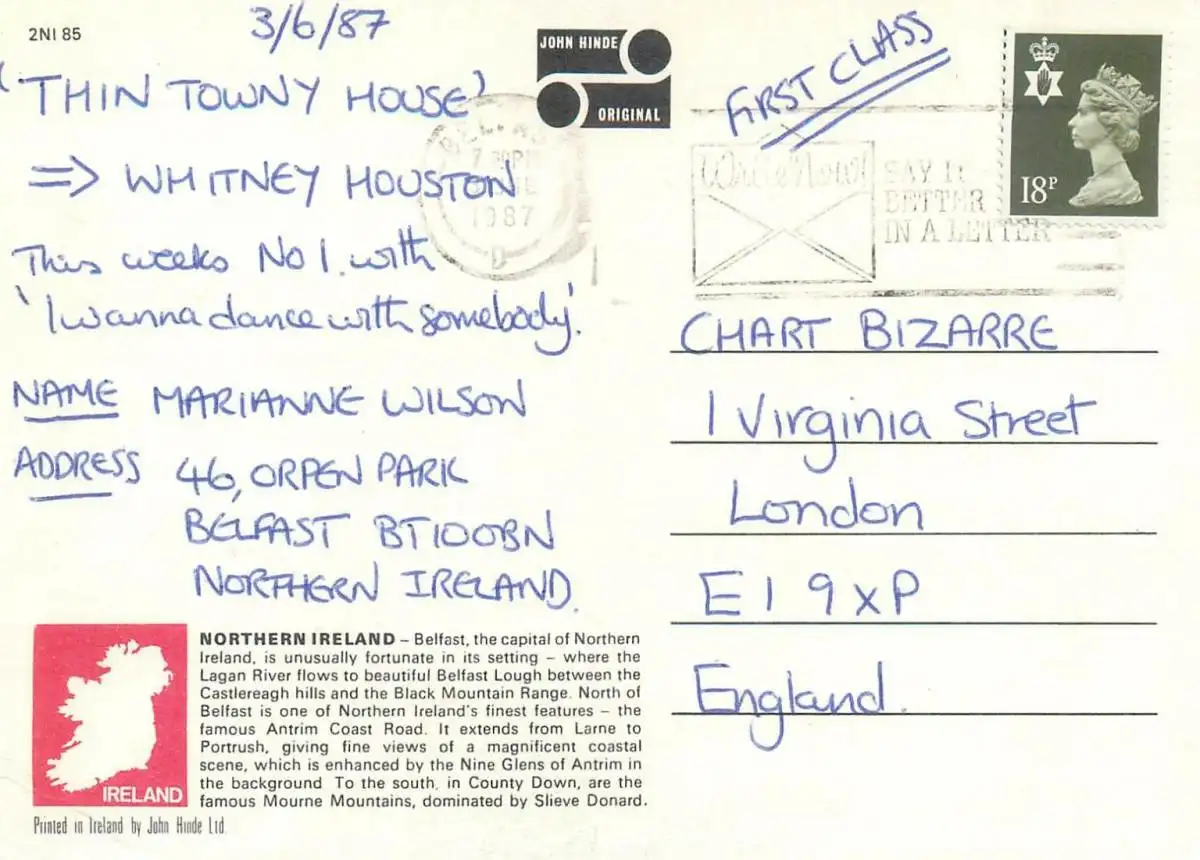 2NI 85
3/6/87
'THIN TOWNY HOUSE'
⇒ WHITNEY HOUSTON
This weeks No 1. with
'I wanna dance with somebody.'
NAME MARIANNE WILSON
ADDRESS 46, ORPEN PARK
BELFAST BT100BN
NORTHERN IRELAND.
NORTHERN IRELAND – Belfast, the capital of Northern
Ireland, is unusually fortunate in its setting – where the
Lagan River flows to beautiful Belfast Lough between the
Castlereagh hills and the Black Mountain Range. North of
Belfast is one of Northern Ireland's finest features – the
famous Antrim Coast Road. It extends from Larne to
Portrush, giving fine views of a magnificent coastal
scene, which is enhanced by the Nine Glens of Antrim in
the background To the south, in County Down, are the
famous Mourne Mountains, dominated by Slieve Donard.
IRELAND
Printed in Ireland by John Hinde Ltd.
JOHN HINDE
ORIGINAL
1987
D
FIRST CLASS
Write Now!
SAY IT
BETTER
IN A LETTER
18P
CHART BIZARRE
1 Virginia Street
London
E1 9XP
England.